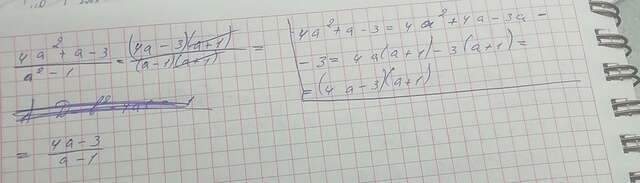 (4a² + a - 3)/(a² - 1) = ((4a - 3)(a + 1))/((a - 1)(a + 1)) =
= (4a - 3)/(a - 1)
4a² + a - 3 = 4a² + 4a - 3a -
- 3 = 4a(a + 1) - 3(a + 1) =
= (4a - 3)(a + 1)